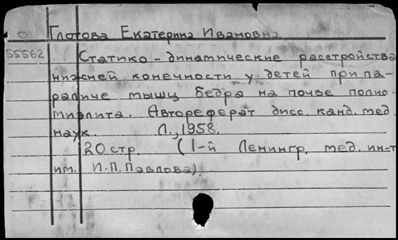 Глотова Екатерина Ивановна
55562 Статико-динамические расстройства
нижней конечности у детей при па-
раличе мышц бедра на почве полио-
миэлита. Автореферат дисс. канд. мед.
наук. Л., 1958.
20 стр. (1-й Ленингр. мед. ин-т
им. И.П. Павлова).